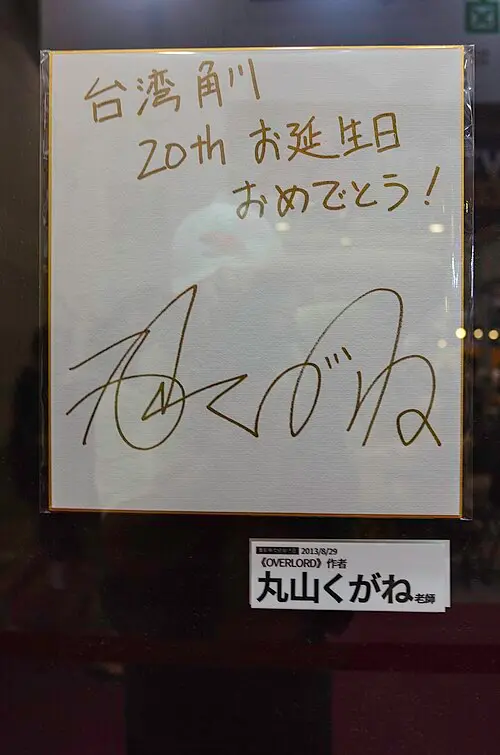 台湾角川
20th お延生日
おめでとう!
丸山くがね
2013/8/29
《OVERLORD》作者
丸山くがね老師